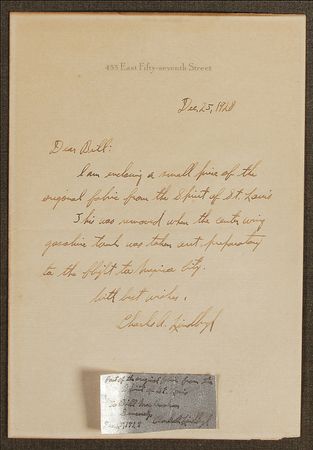 455 East Fifty-seventh Street
Dec. 25, 1928
Dear Bill:
I am enclosing a small piece of the
original fabric from the Spirit of St. Louis
This was removed when the center wing
gasoline tank was taken out preparatory
to the flight to Mexico City.
With best wishes,
Charles A. Lindbergh
Part of the original fabric from the
Spirit of St. Louis
To Bill
Sincerely,